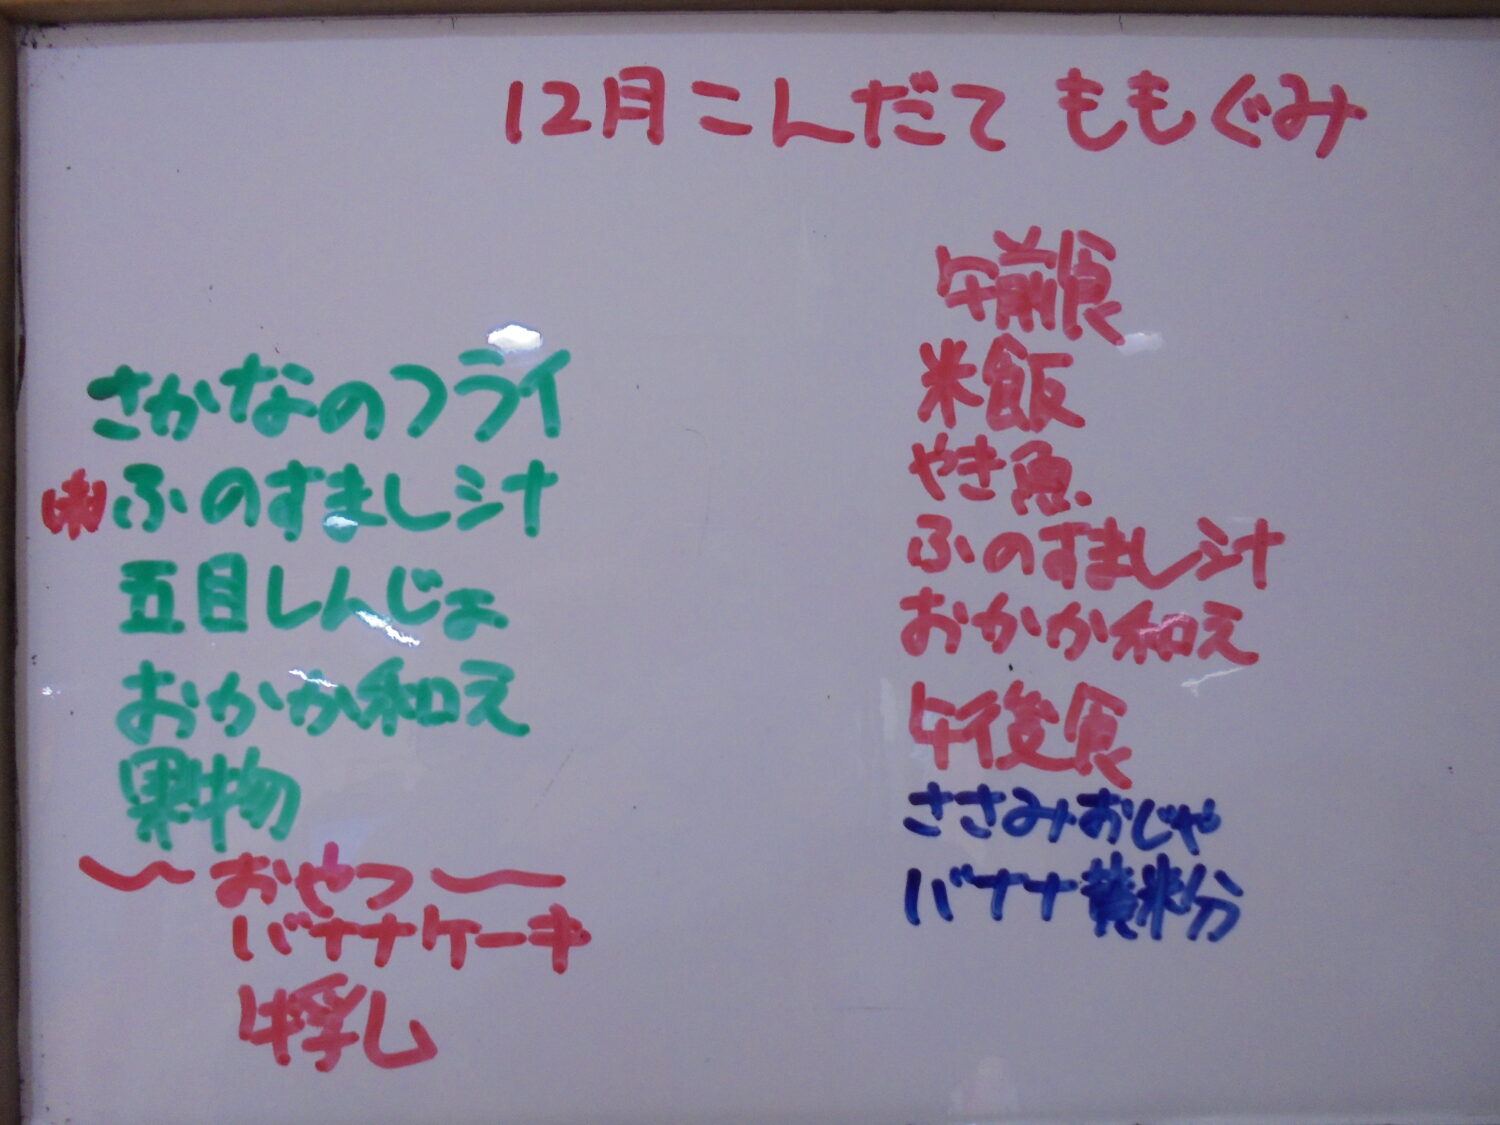 12月こんだて ももぐみ
さかなのフライ
ふのすまし汁
五目しんじょ
おかか和え
果物
〜おやつ〜
バナナケーキ
牛乳
午前食
米飯
やき魚
ふのすまし汁
おかか和え
午後食
ささみおじや
バナナ黄粉分